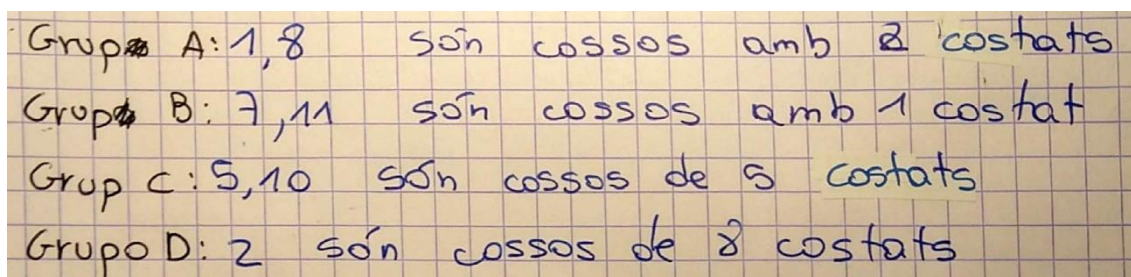 Grup A: 1,8 són cossos amb 2 costats
Grup B: 7,11 són cossos amb 1 costat
Grup C: 5,10 són cossos de 5 costats
Grupo D: 2 són cossos de 8 costats